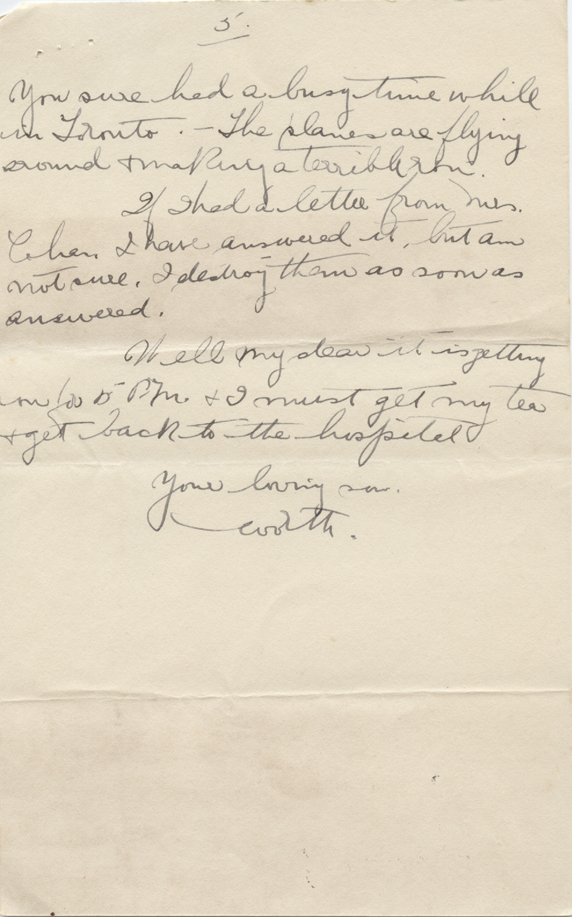 5.
You sure had a busy time while
in Toronto. - The planes are flying
around + making a terrible row.
If I had a letter from Mrs.
I have answered it, but am
not sure. I destroy them as soon as
answered.
Well my dear it is getting
on for 5 P.M. + I must get my tea
+ get back to the hospital
Your loving son.
Worth.